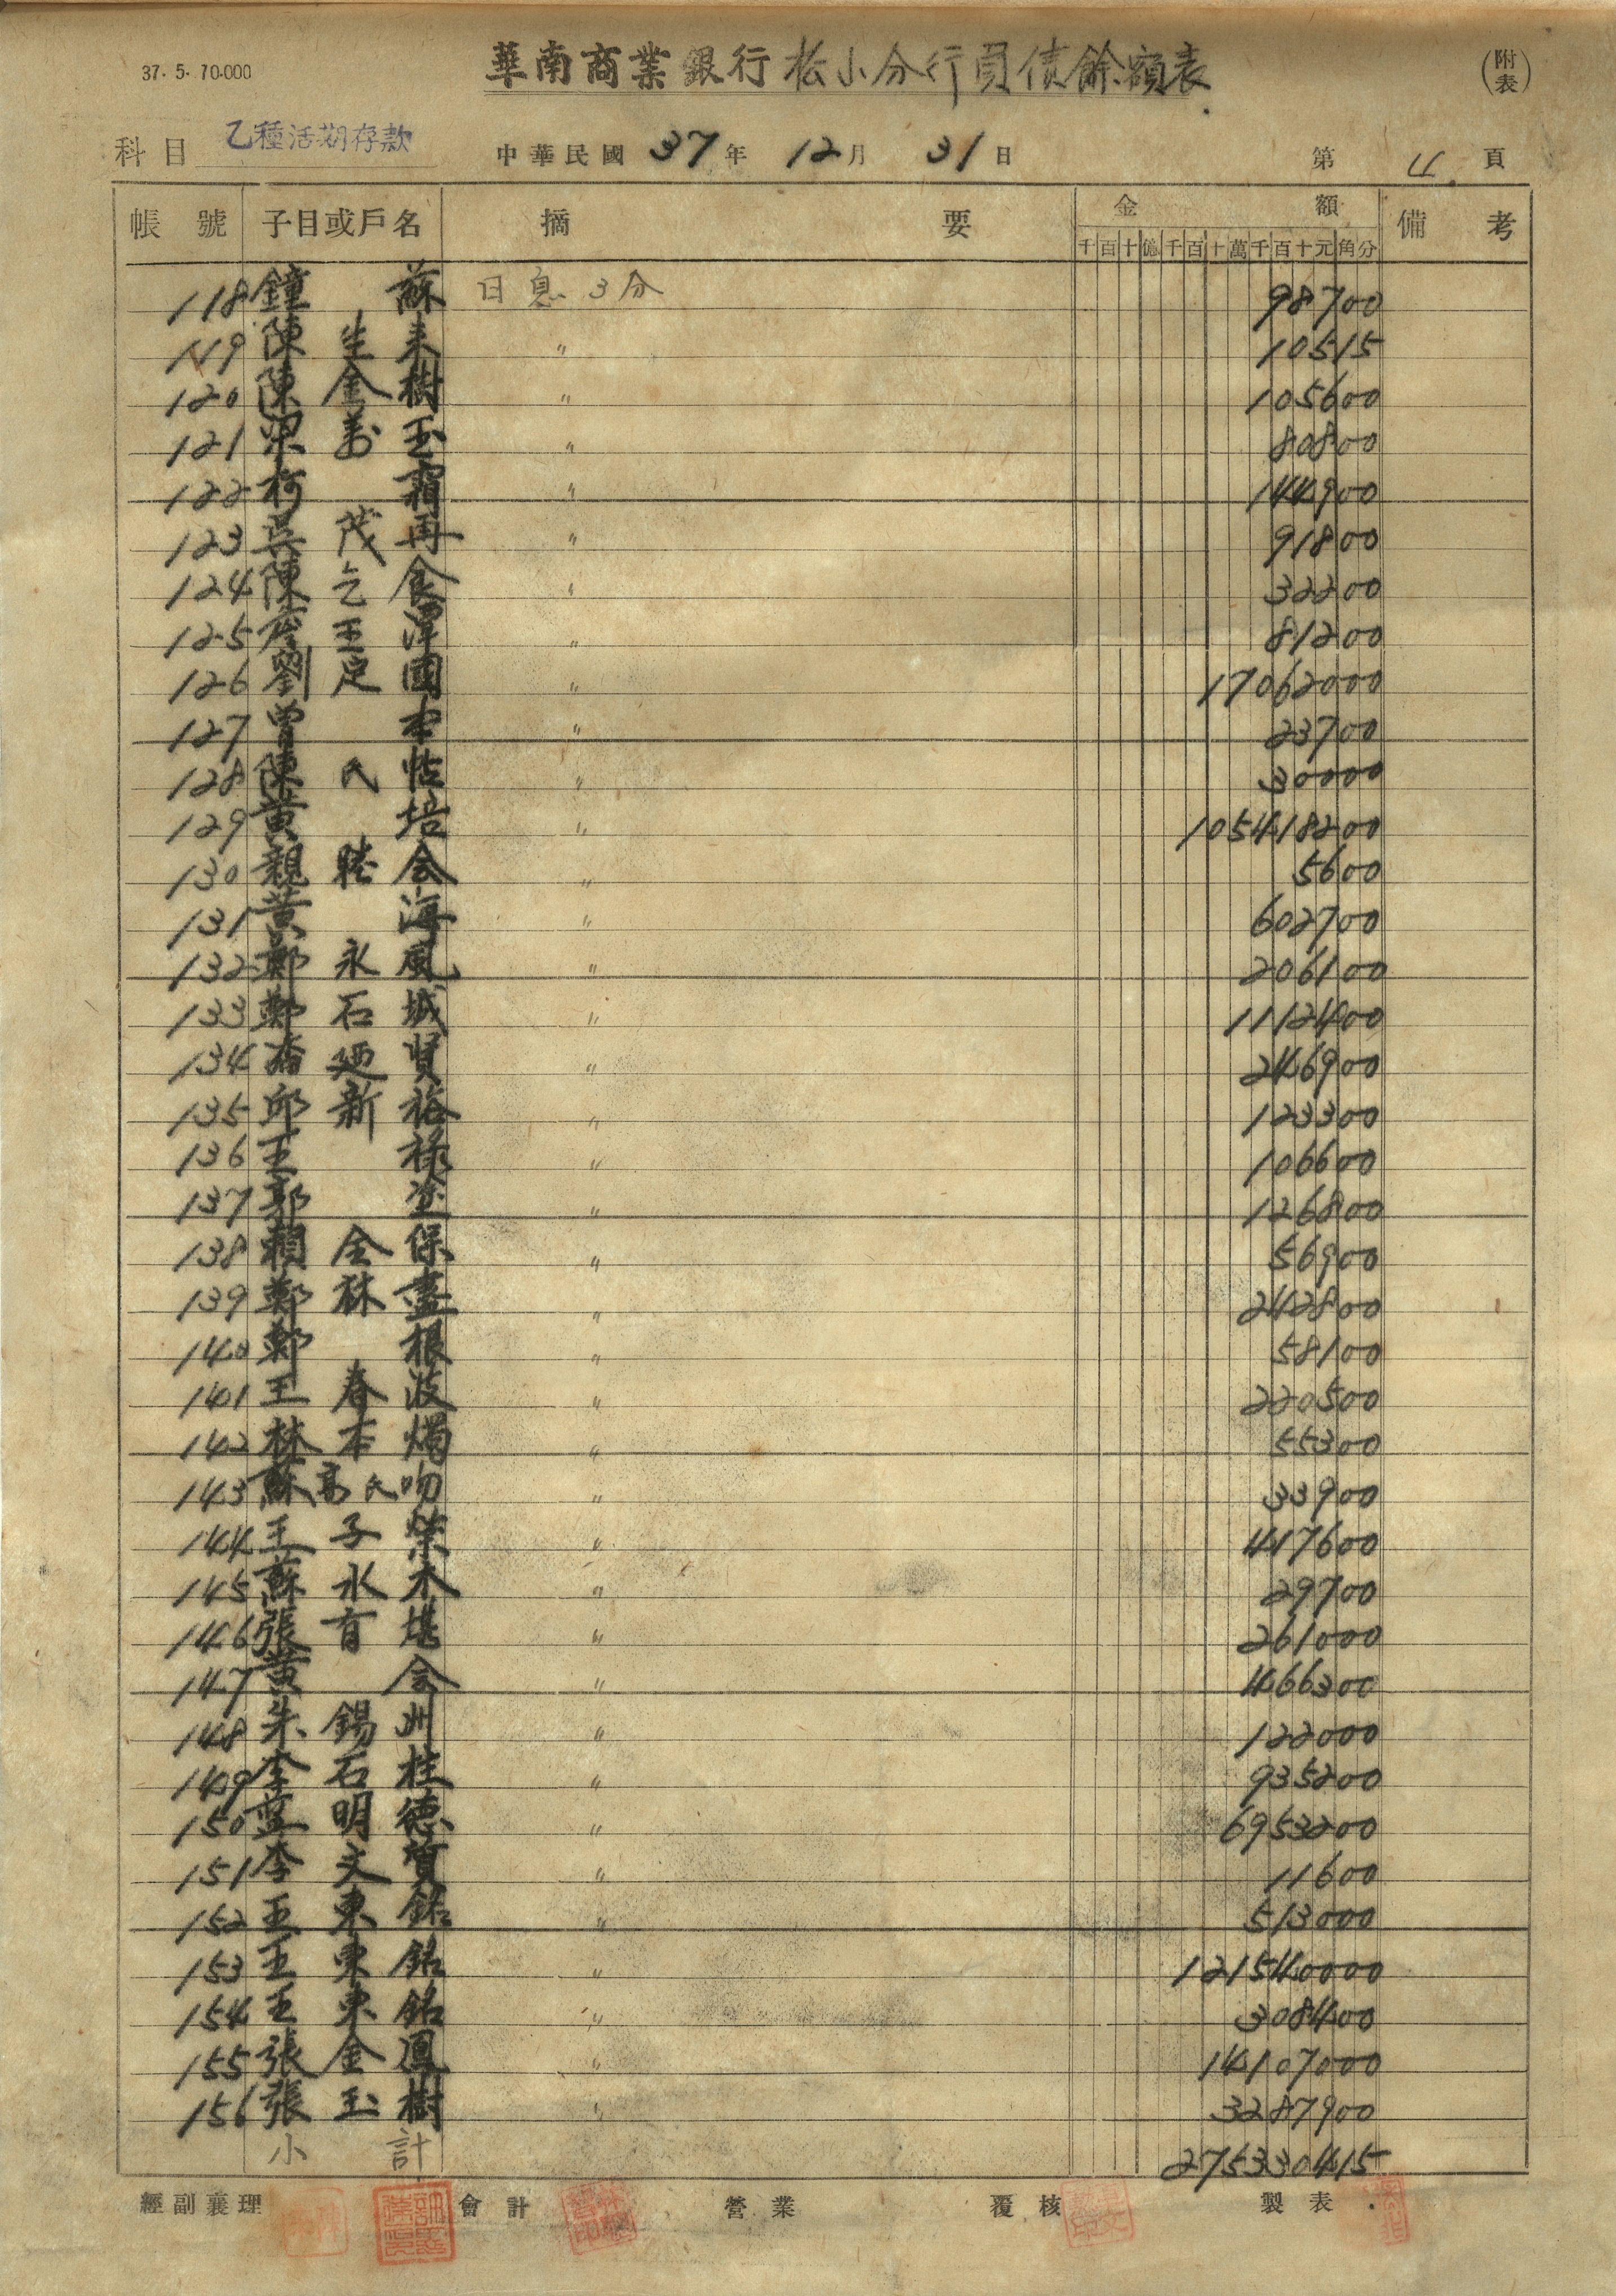 37. 5. 70.000
華南商業銀行松小分行負債餘額表
(附表)
科目 乙種活期存款 中華民國 37年 12月 31日 第 4 頁
帳號 子目或戶名 摘要 金額 備考
千百十億千百十萬千百十元角分
118 鐘蘇 日息3分 98700
119 陳生来 〃 10515
120 陳金樹 〃 105600
121 梁萬玉 〃 80800
122 柯霜 〃 144900
123 吳茂再 〃 91800
124 陳乞食 〃 32200
125 玉潭 〃 81200
126 劉定國 〃 17062000
127 曾本 〃 23700
128 陳氏 〃 30000
129 黃培 〃 105418200
130 親睦会 〃 5600
131 黃海 〃 602700
132 鄭永風 〃 206100
133 鄭石城 〃 1112400
134 廼賢 〃 246900
135 邱新裕 〃 123300
136 王祿 〃 106600
137 郭塗 〃 126800
138 賴金保 〃 56900
139 鄭林盡 〃 242800
140 鄭根 〃 58100
141 王春波 〃 220500
142 林本燭 〃 55300
143 蘇高氏吻 〃 33900
144 王子榮 〃 417600
145 蘇水木 〃 29700
146 張育堪 〃 261000
147 黃会 〃 466300
148 朱錫洲 〃 122000
149 李石柱 〃 935200
150 藍明德 〃 6953200
151 李文質 〃 11600
152 王東銘 〃 513000
153 王東銘 〃 121540000
154 王東銘 〃 308400
155 張金鳳 〃 14107000
156 張玉樹 〃 3287900
小計 275330415
經副襄理 會計 營業 覆核 製表